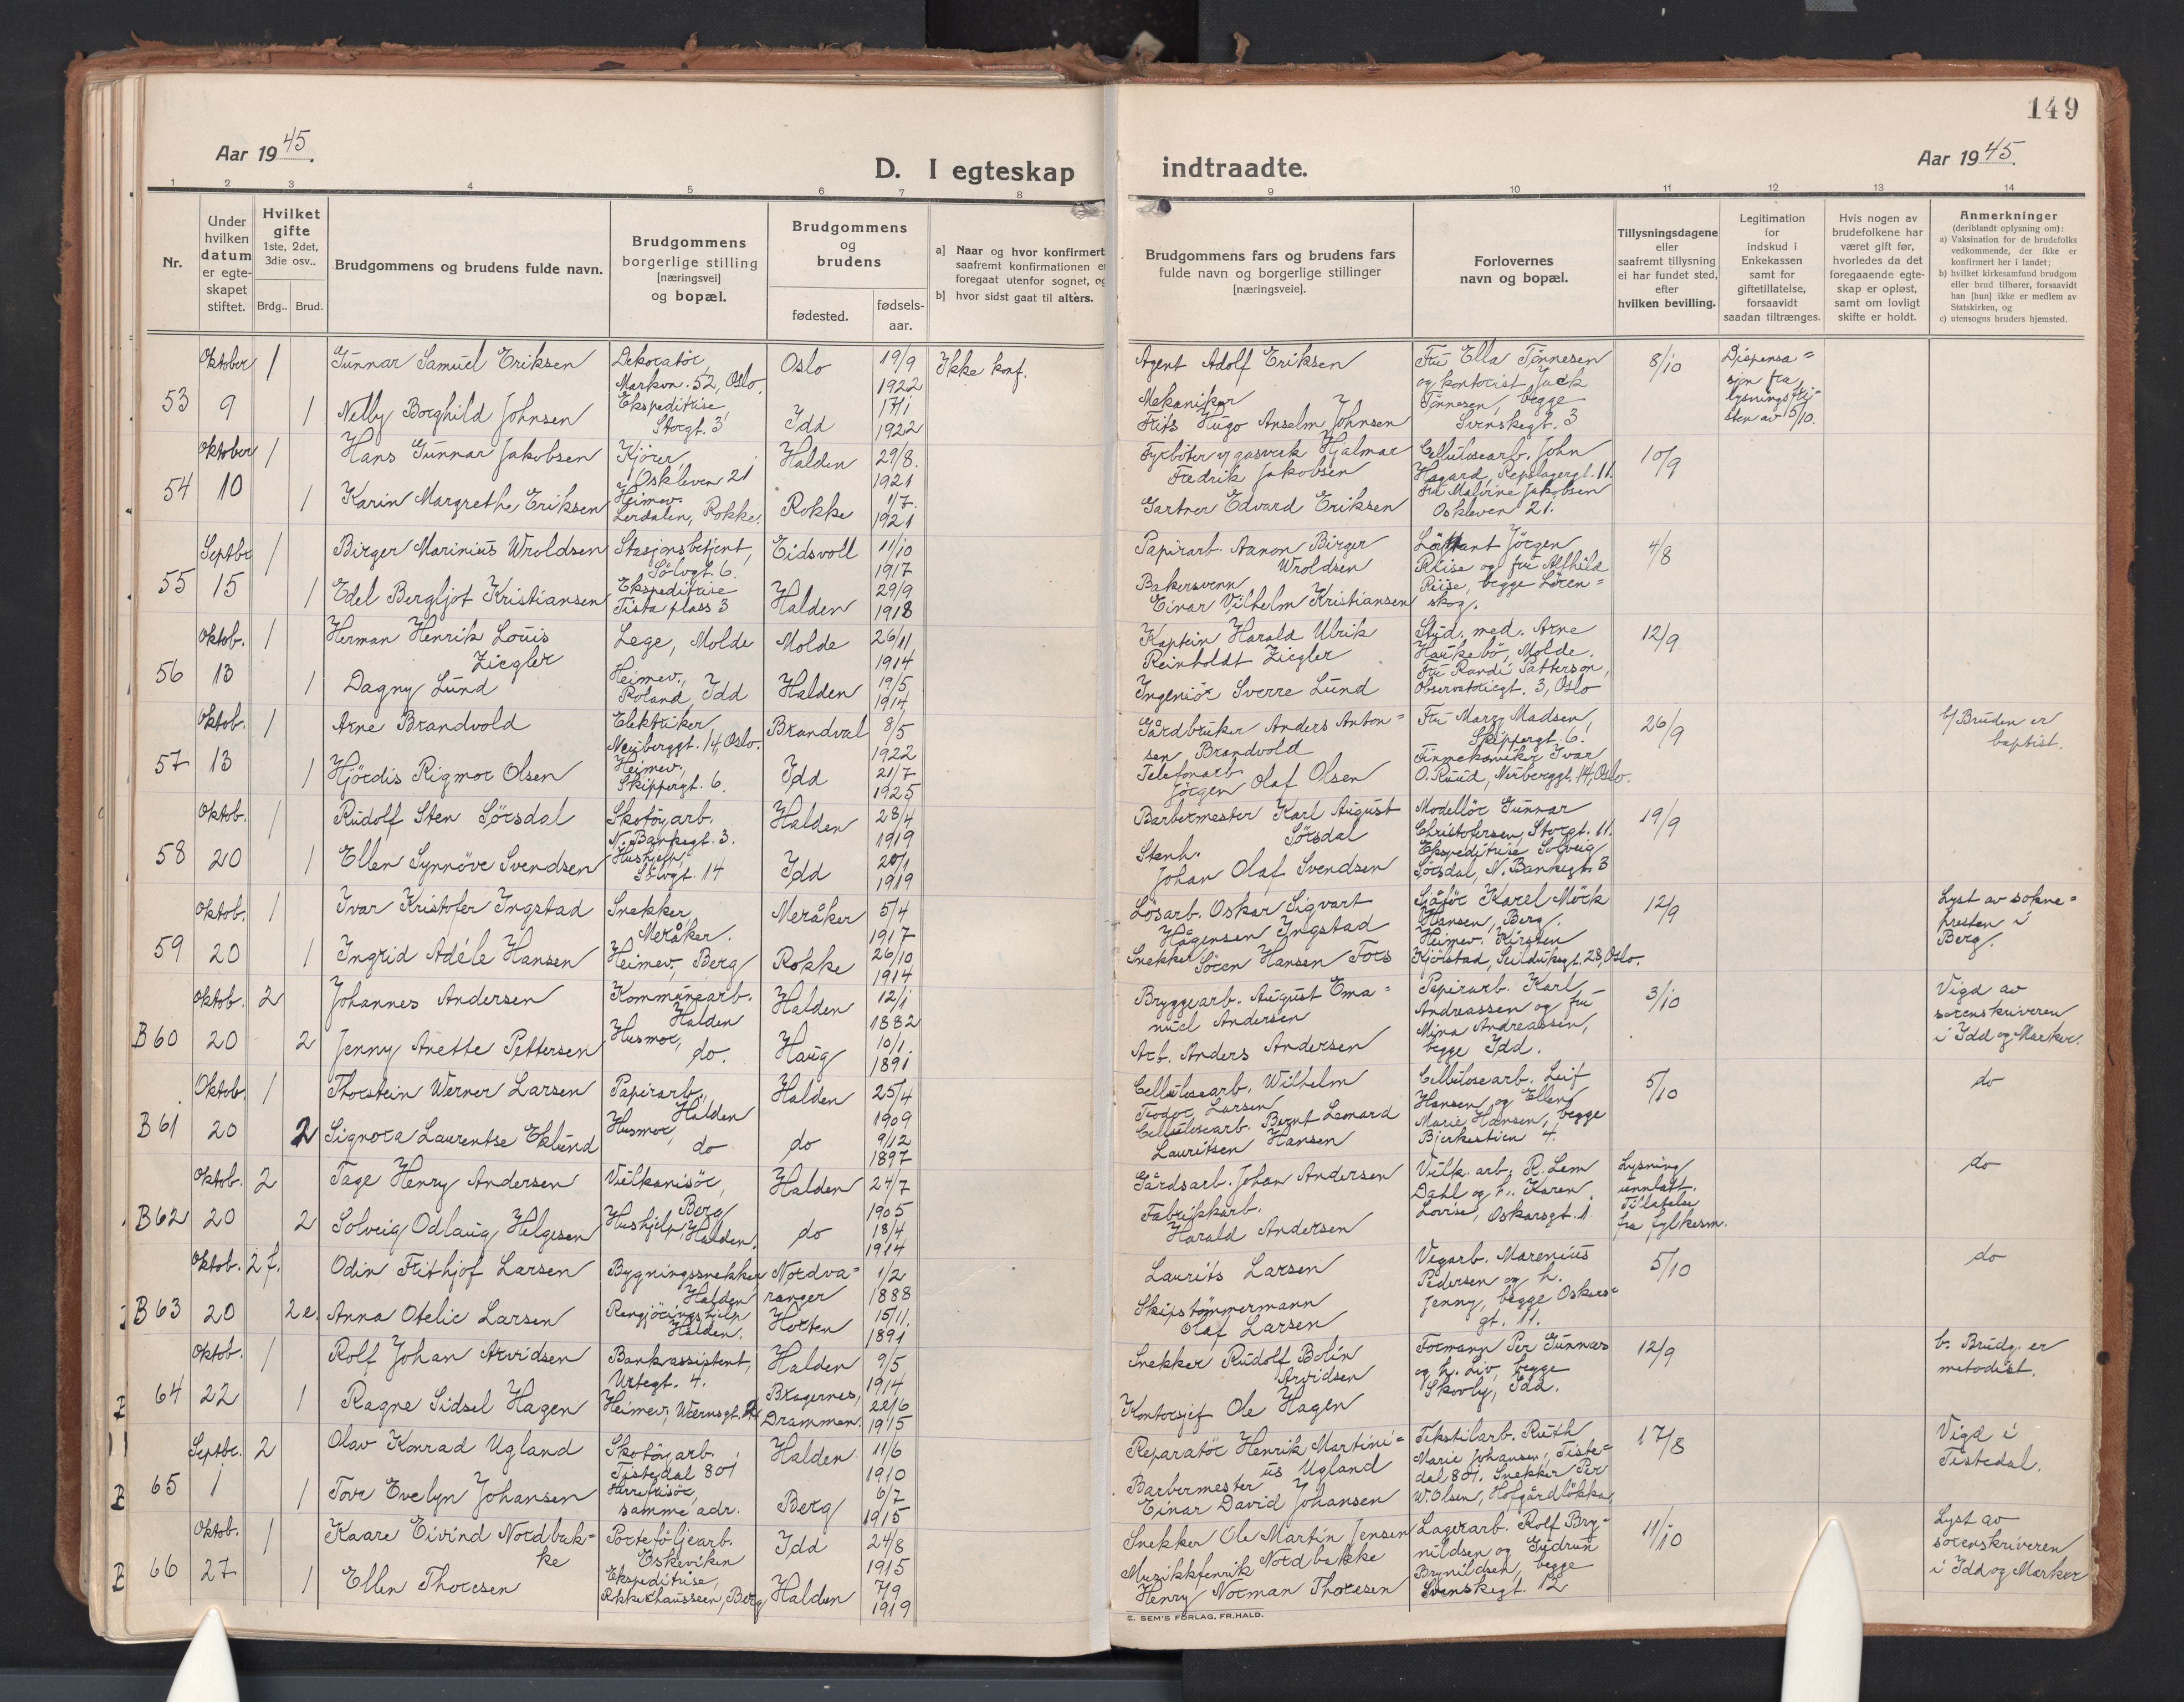 149
Aar 1945.
D. I egteskap indtraadte.
Aar 1945.
1 2 3 4 5 6 7 8 9 10 11 12 13 14
Nr.
Under hvilken datum er egte-skapet stiftet.
Hvilket gifte 1ste, 2det, 3die osv..
Brdg.. Brud.
Brudgommens og brudens fulde navn.
Brudgommens borgerlige stilling [næringsvei] og bopæl.
Brudgommens og brudens
fødested.
fødsels-aar.
a] Naar og hvor konfirmert saafremt konfirmationen er foregaat utenfor sognet, og
b] hvor sidst gaat til alters.
Brudgommens fars og brudens fars fulde navn og borgerlige stillinger [næringsveie].
Forlovernes navn og bopæl.
Tillysningsdagene eller saafremt tillysning ei har fundet sted, efter hvilken bevilling.
Legitimation for indskud i Enkekassen samt for giftetillatelse, forsaavidt saadan tiltrænges.
Hvis nogen av brudefolkene har været gift før, hvorledes da det foregaaende egte-skap er opløst, samt om lovligt skifte er holdt.
Anmerkninger (deriblandt oplysning om):
a) Vaksination for de brudefolks vedkommende, der ikke er konfirmert her i landet;
b) hvilket kirkesamfund brudgom eller brud tilhører, forsaavidt han [hun] ikke er medlem av Statskirken, og
c) utensogns bruders hjemsted.
53 Oktober 9
1 Gunnar Samuel Eriksen Dekoratør, Markvn. 52, Oslo. Oslo 19/9 1922 Ikke konf. Agent Adolf Eriksen
1 Nelly Borghild Johnsen Ekspeditrise, Storgt. 3 Idd 17/1 1922 Mekaniker Frits Hugo Anselm Johnsen
Fru Ella Tønnesen og kontorist Jack Tønnesen, begge Svenskegt. 3 8/10 Dispensa= sjon fra lysningsfri= sten av 5/10.
54 Oktober 10
1 Hans Gunnar Jakobsen Kjører, Oskleven 21 Halden 29/8. 1921 Fyrbøter v/gasverk Hjalmar Fredrik Jakobsen
1 Karin Margrethe Eriksen Heimev. Lerdalen, Rokke. Rokke 1/7. 1921 Gartner Edvard Eriksen
Cellulosearb. John Hagard, Repslagergt. 11. Fru Malvine Jakobsen Oskleven 21. 10/9
55 Septbr 15
1 Birger Marinius Wroldsen Stasjonsbetjent, Sølvgt. 6. Eidsvoll 11/10 1917 Papirarb. Aanon Birger Wroldsen
1 Edel Bergljot Kristiansen Ekspeditrise Tista plass 3 Halden 29/9 1918 Bakersvenn Einar Vilhelm Kristiansen
Løytnant Jörgen Riise og fru Alfhild Riise, begge Lören= skog. 4/8
56 Oktob. 13
1 Herman Henrik Louis Ziegler Lege, Molde Molde 26/11 1914 Kaptein Harald Ulrik Reinholdt Ziegler
1 Dagny Lund Heimev., Roland, Idd Halden 19/5 1914 Ingeniör Sverre Lund
Stud. med. Arne Haukebö, Molde. Fru Randi Patterson, Observatoriegt. 3, Oslo 12/9
57 Oktob. 13
1 Arne Brandvold Elektriker Neuberggt. 14, Oslo. Brandval 8/5 1922 Gårdbruker Anders Anton= sen Brandvold
1 Hjördis Rigmor Olsen Heimev., Skippergt. 6. Idd 21/7 1925 Telefonarb. Jörgen Olaf Olsen
Fru Mary Madsen, Skippergt. 6. Finmekaniker Ivar O. Ruud, Neuberggt. 14, Oslo. 26/9 b/ Bruden er baptist.
58 Oktob. 20
1 Rudolf Sten Sörsdal Skotöyarb. N. Bankegt. 3. Halden 28/4 1919 Barbermester Karl August Sörsdal
1 Ellen Synnöve Svendsen Hushjelp, Sölvgt. 14 Idd 20/1 1919 Stenh. Johan Olaf Svendsen
Modellör Gunnar Christofersen, Storgt. 11. Ekspeditrise Solveig Sörsdal, N. Bankegt. 3 19/9
59 Oktob. 20
1 Ivar Kristofer Ingstad Snekker, Meråker. Meråker 5/4 1917 Lösarb. Oskar Sigvart Hågensen Ingstad
1 Ingrid Adéle Hansen Heimev., Berg Rokke 26/10 1914 Snekker Sören Hansen Fors
Sjåför Karel Mörk Hansen, Berg. Heimev. Kirsten Kjölstad, Seilduksgt. 28, Oslo. 12/9 Lyst av sokne= presten i Berg.
B 60 Oktob. 20
2 Johannes Andersen Kommunearb. Halden Halden 12/1 1882 Bryggearb. August Ema= nuel Andersen
2 Jenny Anette Pettersen Husmor, do. Haug 10/1 1891 Arb. Anders Andersen
Papirarb. Karl Andreassen og fru Mina Andreassen, begge Idd. 3/10 Vigd av sorenskriveren i Idd og Marker.
B 61 Oktob. 20
1 Thorstein Werner Larsen Papirarb., Halden Halden 25/4 1909 Cellulosearb. Wilhelm Teodor Larsen
2 Signora Laurentse Eklund Husmor, do do 9/12 1897 Cellulosearb. Bernt Lenard Lauritsen Hansen
Cellulosearb. Leif Hansen og Ellen Marie Hansen, begge Bjerkestien 4. 5/10 do
B 62 Oktob. 20
2 Tage Henry Andersen Vulkanisör, Berg Halden 24/7 1905 Gårdsarb. Johan Andersen
2 Solveig Odlaug Helgesen Hushjelp, Halden. do 18/4 1914 Fabrikkarb. Harald Andersen
Vulk. arb. R. Lem Dahl og h. Karen Lovise, Oskarsgt. 1. Lysning unnlatt. Tillatelse fra fylkesm. do
B 63 Oktob. 20
2 f. Odin Frithjof Larsen Bygningssnekker Halden Nordva= ranger 1/2 1888 Laurits Larsen
2 e. Anna Otelie Larsen Rengjöringshjelp Halden. Horten 15/11. 1891 Skipstömmermann Olaf Larsen
Vegarb. Marenius Pedersen og h. Jenny, begge Oskars= gt. 11. 5/10 do
64 Oktob. 22
1 Rolf Johan Arvidsen Bankassistent, Urtegt. 4. Halden 9/5 1914 Snekker Rudolf Bolin Arvidsen
1 Ragne Sidsel Hagen Heimev., Wærnsgt. 2 Bragernes, Drammen. 22/6 1915 Kontorsjef Ole Hagen
Formann Per Gunnars og h. Liv, begge Skovly, Idd. 12/9 b. Brudg. er metodist.
65 Septbr. 1
2 Olav Konrad Ugland Skotöyarb. Tistedal 801 Halden 11/6 1910 Reparatör Henrik Martini= us Ugland
1 Tove Evelyn Johansen samme adr. Berg 6/7 1915 Barbermester Einar David Johansen
Tekstilarb. Ruth Marie Johansen, Tiste= dal 801. Snekker Per W. Olsen, Hofgårdlökka 17/8 Vigd i Tistedal.
66 Oktob. 27
1 Kaare Eivind Nordbak= ke Porteföljearb. Eskeviken Idd 24/8 1915 Snekker Ole Martin Jensen Nordbakke
1 Ellen Thoresen Ekspeditrise, Rokkechausseen, Berg Halden 7/9 1919 Musikkfenrik Henry Norman Thoresen
Lagerarb. Rolf Bry= nildsen og Gudrun Brynildsen, begge Svenskegt. 12 11/10 Lyst av sorenskriveren i Idd og Marker
E. SEM'S FORLAG, FR.HALD.